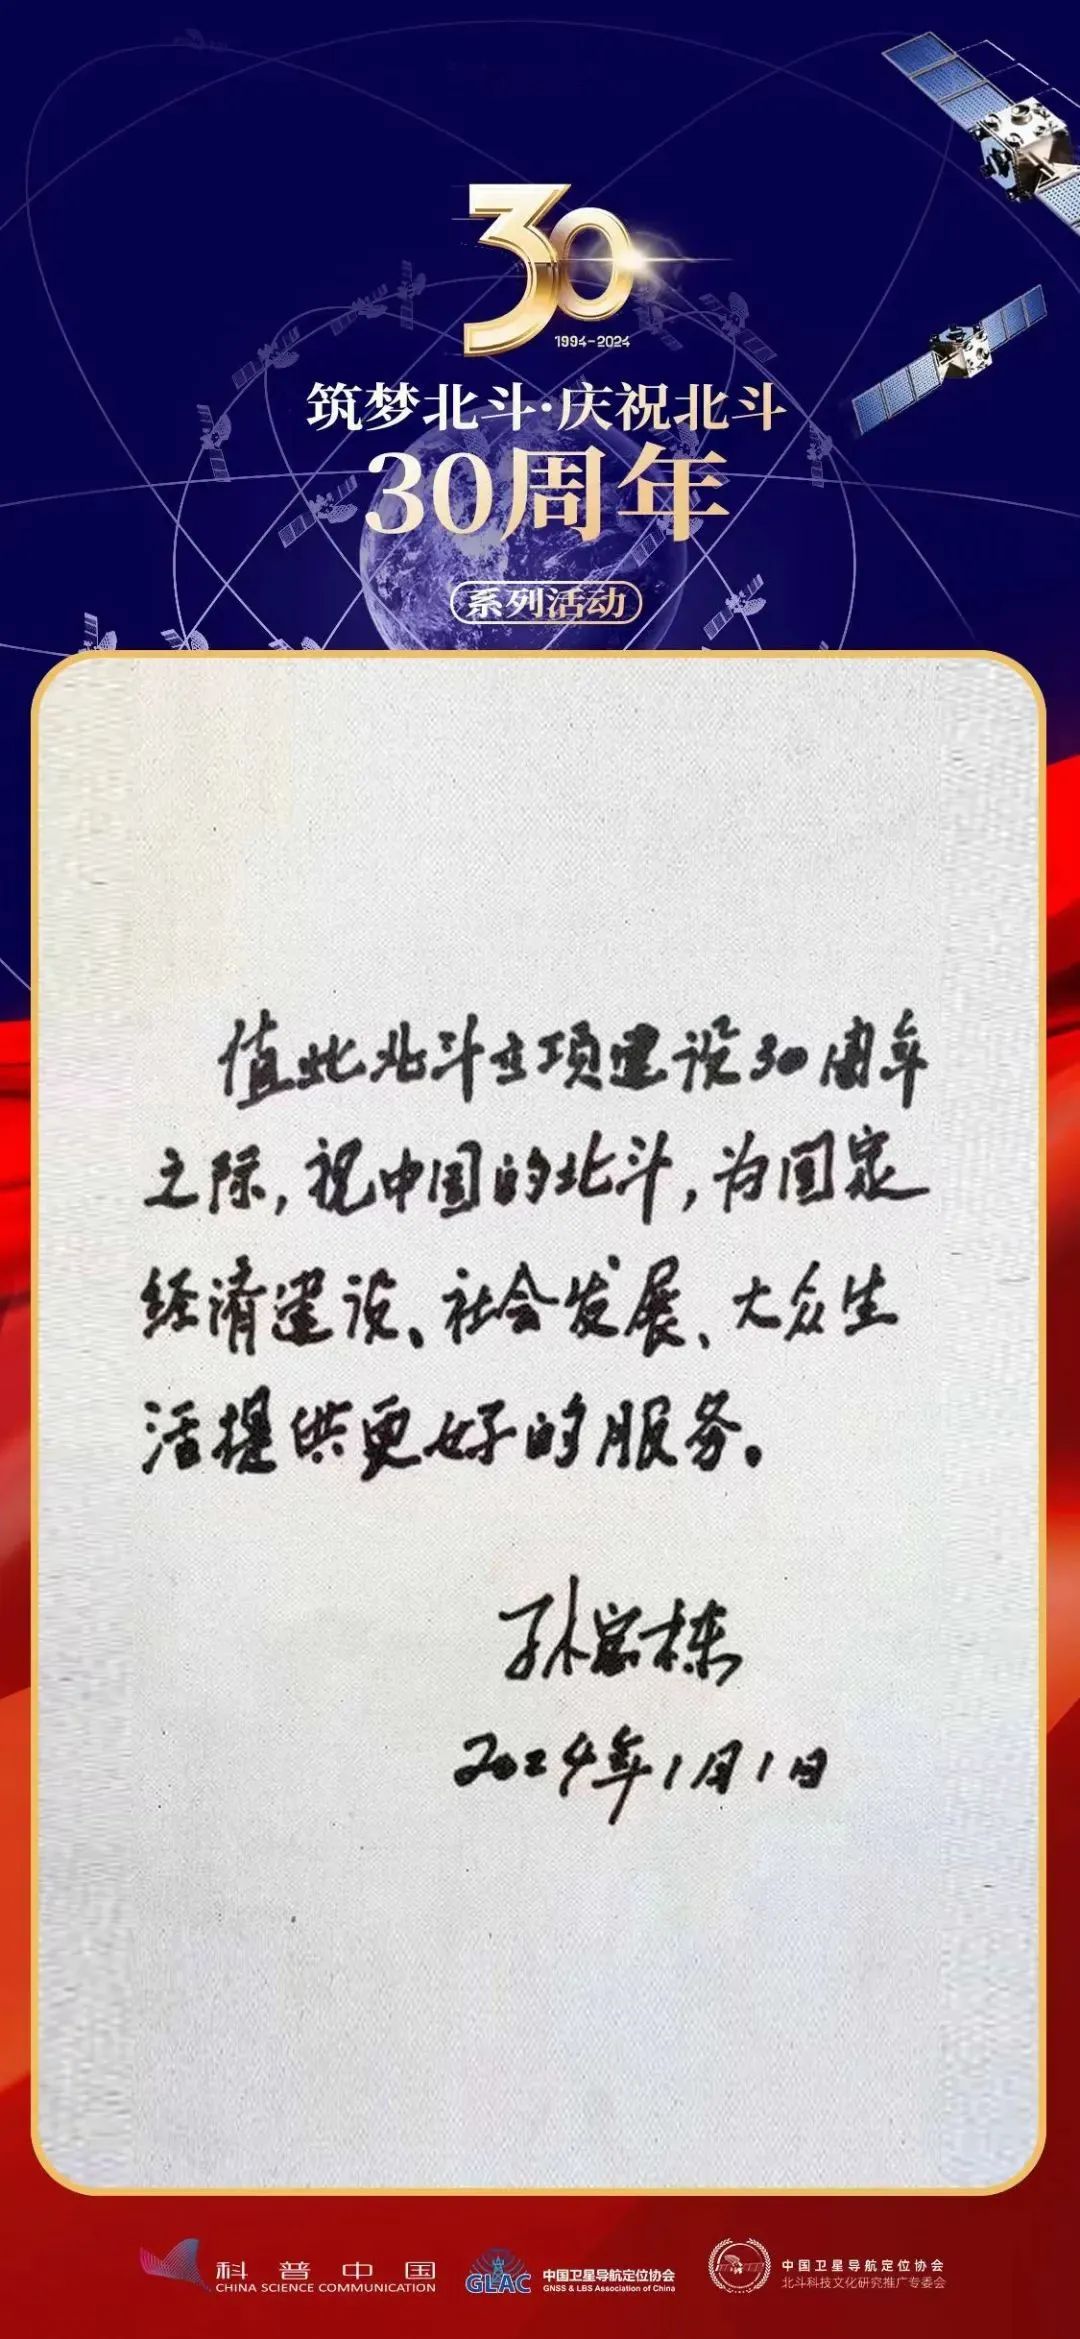 30
1994-2024
筑梦北斗·庆祝北斗
30周年
系列活动
值此北斗立项建设30周年
之际,祝中国的北斗,为国家
经济建设、社会发展、大众生
活提供更好的服务。
孙家栋
2024年1月1日
科普中国
CHINA SCIENCE COMMUNICATION
GLAC
中国卫星导航定位协会
GNSS & LBS Association of China
中国卫星导航定位协会
北斗科技文化研究推广专委会